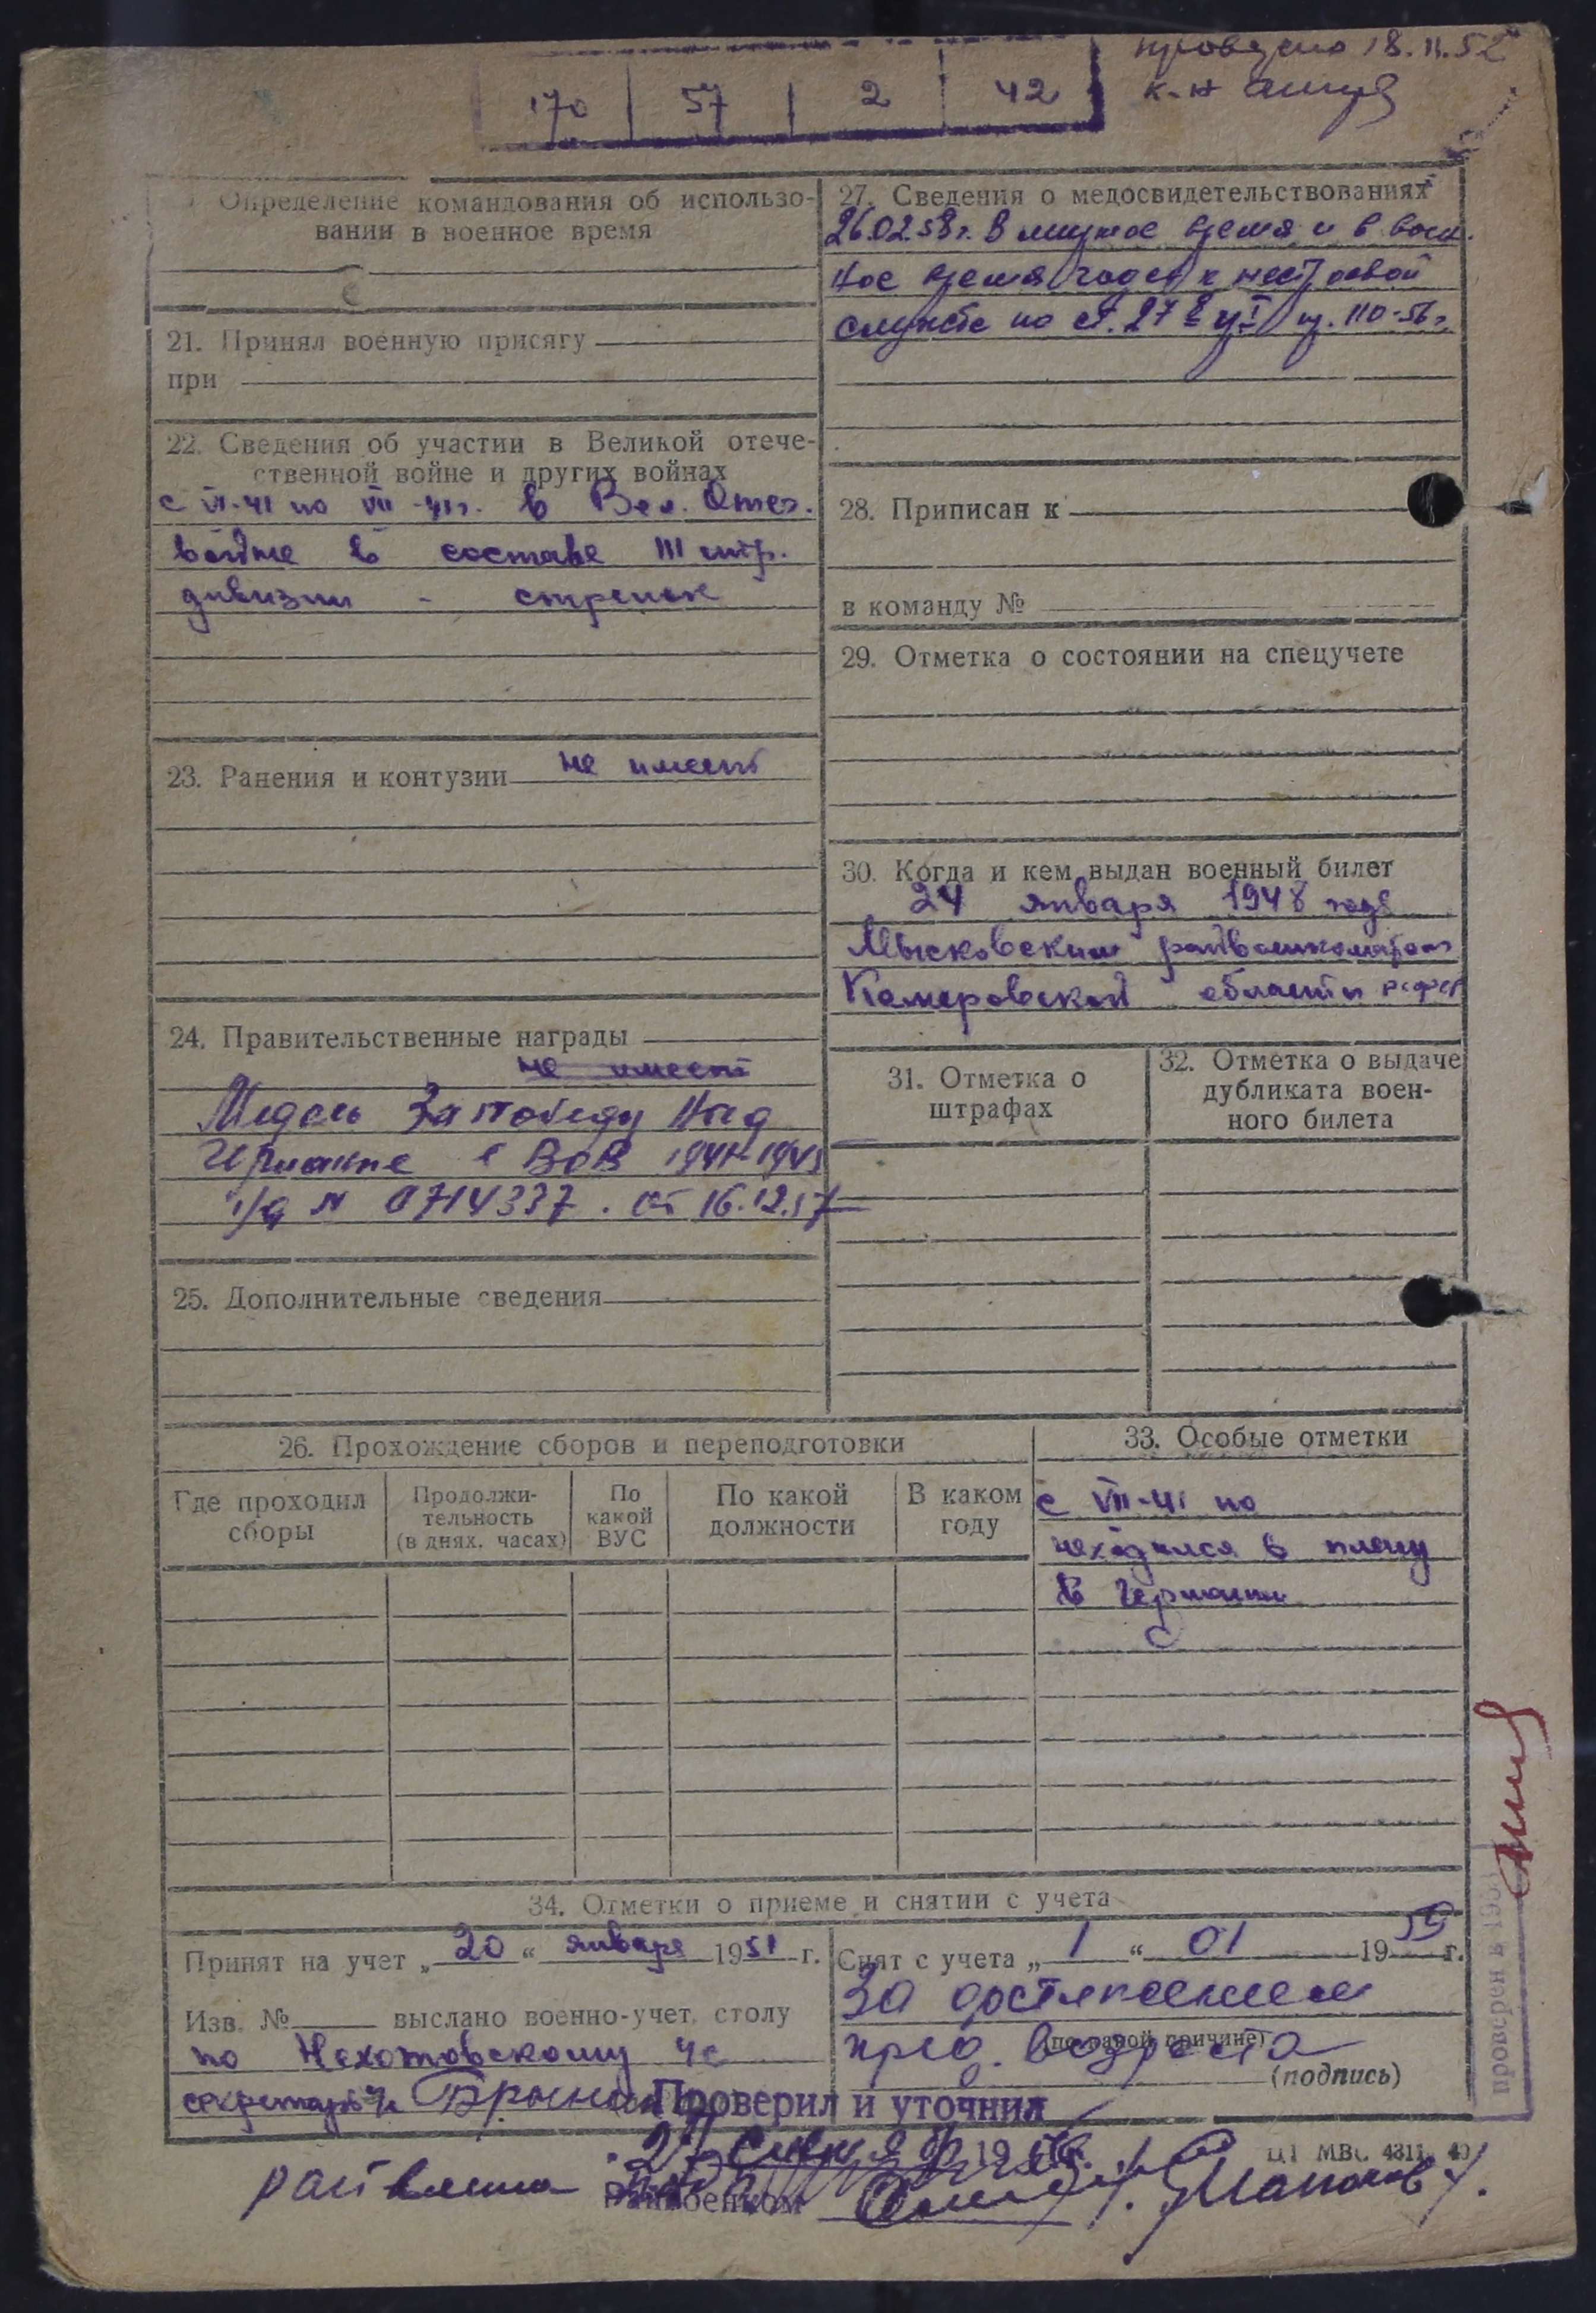 проведено 18.11.52
170 57 2 42
к-н
Определение командования об использо-
вании в военное время
21. Принял военную присягу
при
22. Сведения об участии в Великой отече-
ственной войне и других войнах
с VI-41 по VII-41г. в Вел. Отеч.
войне в составе III стр.
дивизии - стрелок
23. Ранения и контузии не имеет
24. Правительственные награды
не имеет
Медаль За победу над
Германие в ВОВ 1941-1945
у/д № 0714337. от 16.12.57
25. Дополнительные сведения
27. Сведения о медосвидетельствованиях
26.02.58г. В мирное время и в воен.
ное время годен к нестроевой
службе по ст. 27 пр. 110-56г.
28. Приписан к
в команду №
29. Отметка о состоянии на спецучете
30. Когда и кем выдан военный билет
24 января 1948 года
Мысковским райвоенкоматом
Кемеровской области РСФСР
31. Отметка о
штрафах
32. Отметка о выдаче
дубликата воен-
ного билета
26. Прохождение сборов и переподготовки
Где проходил
сборы
Продолжи-
тельность
(в днях, часах)
По
какой
ВУС
По какой
должности
В каком
году
33. Особые отметки
с VII-41 по
находился в плену
в Германии
34. Отметки о приеме и снятии с учета
Принят на учет „20“ января 1951 г.
Изв. № выслано военно-учет. столу
по Нехотовскому чс
секретарь
Снят с учета „1“ 01 1959 г.
За достижением
пред. возраста
(по какой причине)
(подпись)
Проверил и уточнил
27 1956.
Райвоенком
райвоенко
ЦТ МВС 4311, 49
проверен в 195